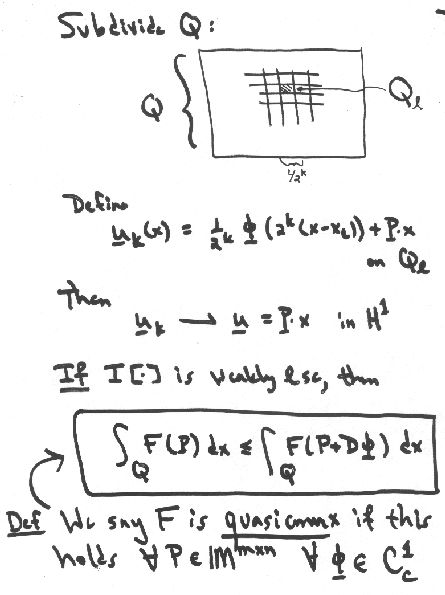 Subdivide Q:
Q
Q_l
1/2^k
Define
u_k(x) = 1/2^k Φ(2^k(x-x_l)) + P·x
on Q_l
Then
u_k → u = P·x in H^1
If I[·] is weakly lsc, then
∫_Q F(P) dx ≤ ∫_Q F(P+DΦ) dx
Def We say F is quasiconvex if this
holds ∀ P ∈ M^{m×n} ∀ Φ ∈ C_c^1